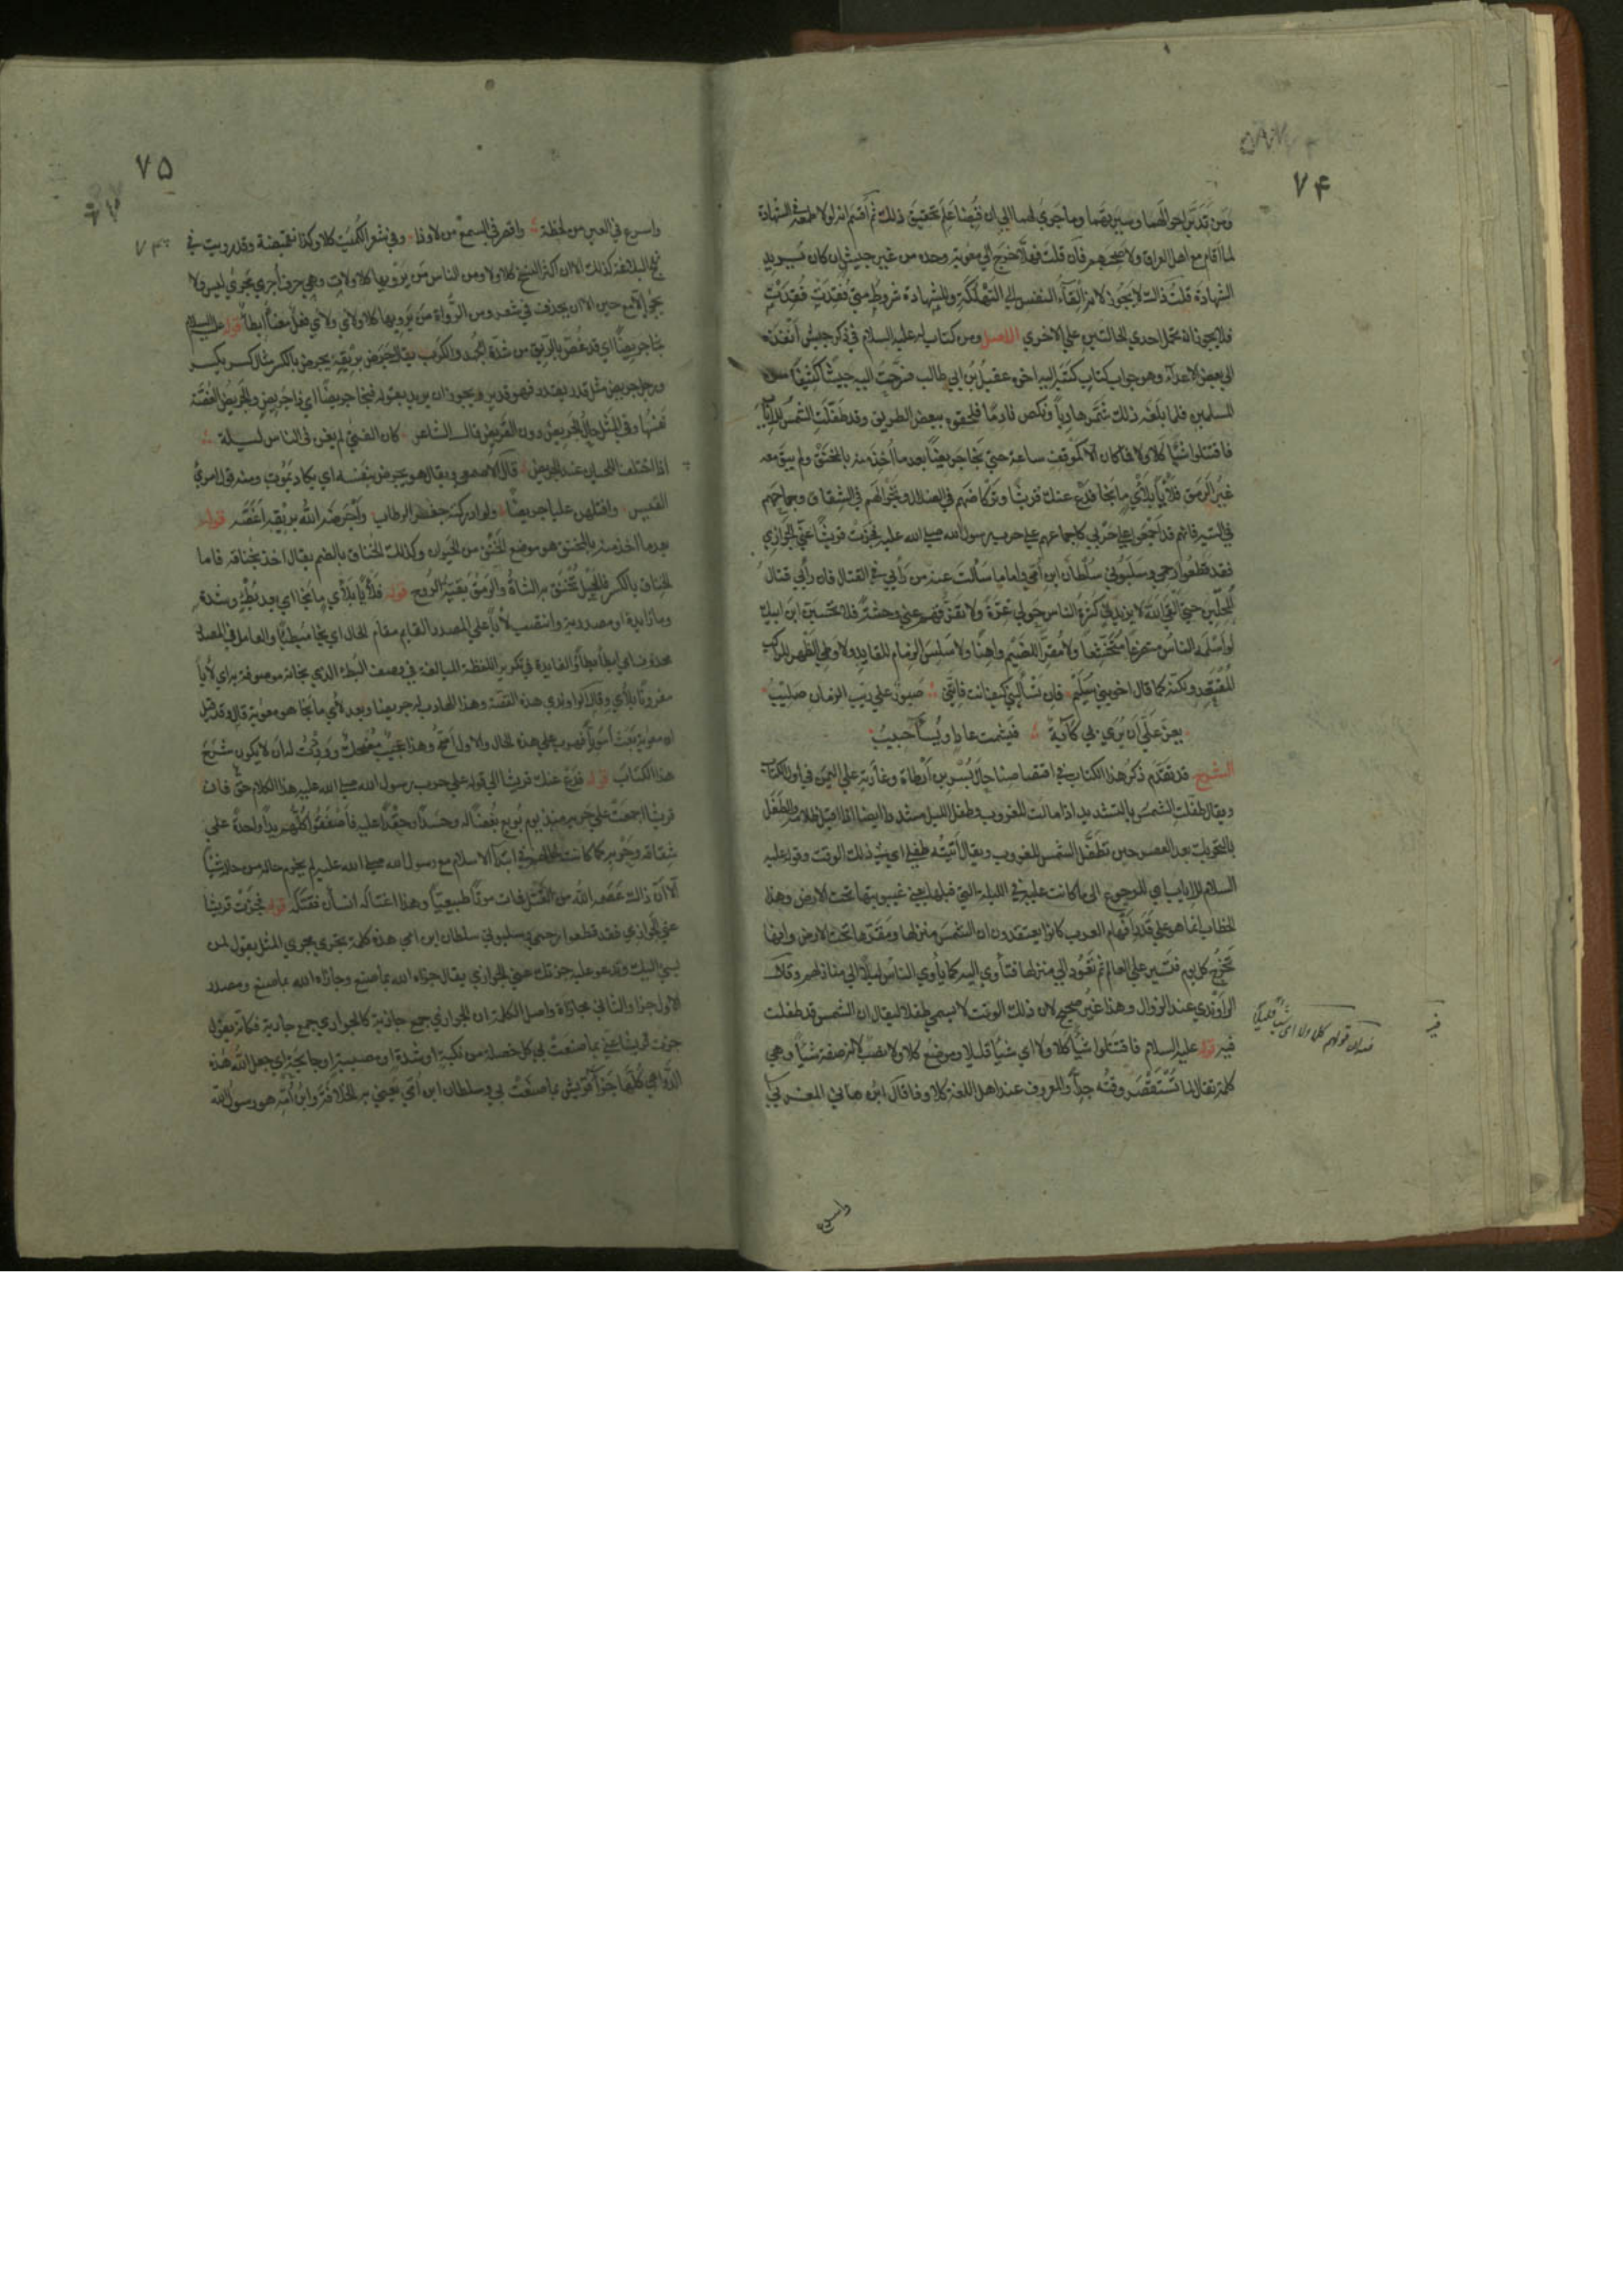 ٧۴
ومن تدبر احوالهما وسيرتهما وما جرى لهما الى ان قبضا علم تحقيق ذلك ثم اقسم انه لولا طمعه في الشهادة
لما اقام مع اهل العراق ولا صحبهم فان قلت فهلا خرج الى معوية وحده من غير جيش ان كان يريد
الشهادة قلت ذلك لا يجوز لانه القاء النفس الى التهلكة وللشهادة شروط متى فقدت فقدت
فلا يجوز ان تحمل احدى الحالتين على الاخرى الاصل ومن كتاب له عليه السلام في ذكر جيش انفذه
الى بعض الاعداء وهو جواب كتاب كتبه اليه اخوه عقيل بن ابي طالب فسرحت اليه جيشا كثيفا من
المسلمين فلما بلغه ذلك شمر هاربا ونكص نادما فلحقوه ببعض الطريق وقد طفلت الشمس للاياب
فاقتتلوا شيئا كلا ولا فما كان الا كموقف ساعة حتى نجا جريضا بعد ما اخذ منه بالمخنق ولم يبق معه
غير الرمق فلأيا بلأي ما نجا فدع عنك قريشا وتركاضهم في الضلال وتجوالهم في الشقاق وجماحهم
في التيه فانهم قد اجمعوا على حربي كاجماعهم على حرب رسول الله صلى الله عليه فجزت قريشا عني الجوازي
فقد قطعوا رحمي وسلبوني سلطان ابن امي واما ما سألت عنه من رأيي في القتال فان رأيي قتال
المحلين حتى القى الله لا يزيدني كثرة الناس حولي عزة ولا تفرقهم عني وحشة فلا تحسبن ابن ابيك
لو اسلمه الناس متضرعا متخشعا ولا مقرا للضيم واهنا ولا سلس الزمام للقايد ولا وطئ الظهر للراكب
المقتعد ولكنه كما قال اخو بني سليم فان تسأليني كيف انت فانني صبور على ريب الزمان صليب
يعز علي ان يرى بي كآبة فيشمت عاد او يساء حبيب
الشرح قد تقدم ذكر هذا الكتاب في اقتصاصنا حال بسر بن ارطاة وغارته على اليمن في اول الكتاب
ويقال طفلت الشمس بالتشديد اذا مالت للغروب وطفل الليل مشددا ايضا اذا اقبل ظلامه والطفل
بالتحريك بعد العصر حين تطفل الشمس للغروب ويقال اتيته طفلا اي في ذلك الوقت وقوله عليه
السلام للاياب اي للرجوع الى ما كانت عليه في الليلة التي قبلها يعني غيبوبتها تحت الارض وهذا
الخطاب انما هو على قدر افهام العرب كانوا يعتقدون ان الشمس منزلها ومقرها تحت الارض وانها
تخرج كل يوم فتسير على العالم ثم تعود الى منزلها فتأوي اليه كما يأوي الناس ليلا الى منازلهم وقال
الراوندي عند الزوال وهذا غير صحيح لان ذلك الوقت لا يسمى طفلا ليقال ان الشمس قد طفلت
فيه قوله عليه السلام فاقتتلوا شيئا كلا ولا اي شيئا قليلا وموضع كلا ولا نصب لانه صفة شيئا وهي
كلمة تقال لما تستقصر وقته جدا والمعروف عند اهل اللغة كلا وذا قال ابن هاني المغربي
قولهم كلا ولا اي شيئا قليلا
واسرع
٧۵
٧۴
واسرع في العين من لحظة واقصر في السمع من لا وذا وفي شعر الكميت كلا وكذا تغميضة وقد رويت في
نهج البلاغة كذلك الا ان اكثر النسخ كلا ولا ومن الناس من يرويها كلا ولات وهي حرف اجري مجرى ليس ولا
يجئ الا مع حين الا ان يحذف في شعر ومن الرواة من يرويها كلا ولأى ولأى فعل معناه ابطأ قوله عليه السلام
نجا جريضا اي قد غص بالريق من شدة الجهد والكرب يقال جرض بريقه يجرض بالكسر مثال كسر يكسر
ورجل جريض مثل قدر يقدر فهو قدير ويجوز ان يريد بقوله فنجا جريضا اي ذا جريض والجريض الغصة
نفسها وفي المثل حال الجريض دون القريض قال الشاعر كان الفتى لم يغن في الناس ليلة
اذا اختلف اللحيان عند الجريض قال الاصمعي ويقال هو يجرض بنفسه اي يكاد يموت ومنه قول امرئ
القيس وافلتهن علباء جريضا ولو ادركنه صفر الوطاب واجرضه الله بريقه اغصه قوله
بعد ما اخذ منه بالمخنق هو موضع الخنق من الحيوان وكذلك الخناق بالضم يقال اخذ بخناقه فاما
الخناق بالكسر فالحبل تخنق به الشاة والرمق بقية الروح قوله فلأيا بلأي ما نجا اي بعد بطء وشدة
وما زايدة او مصدرية وانتصب لأيا على المصدر القايم مقام الحال اي نجا مبطئا والعامل في المصدر
محذوف اي ابطأ بطأ والفايدة في تكرير اللفظة المبالغة في وصف البطء الذي نجا به موصوفة به اي لأيا
مقرونا بلأي وقال الراوندي هذه القصة وهذا الهارب جريضا وبعد لأي ما نجا هو معوية قال وقد قيل
ان معوية بعث امويا فهرب على هذه الحال والاول اصح وهذا عجيب مضحك ووددت له ان لا يكون شرح
هذا الكتاب قوله فدع عنك قريشا الى قوله على حرب رسول الله صلى الله عليه هذا الكلام حق فان
قريشا اجمعت على حربه منذ يوم بويع بغضا له وحسدا وحقدا عليه فاصفقوا كلهم يدا واحدة على
شقاقه وحربه كما كانت في ابتداء الاسلام مع رسول الله صلى الله عليه لم يخرم حاله من حاله شيئا
الا ان ذاك عصمه الله من القتل فمات موتا طبيعيا وهذا اغتاله انسان فقتله قوله فجزت قريشا
عني الجوازي فقد قطعوا رحمي وسلبوني سلطان ابن امي هذه كلمة تجري مجرى المثل يقول لمن
يسئ اليك وتدعو عليه جزتك عني الجوازي يقال جزاه الله بما صنع وجازاه الله بما صنع ومصدر
الاول جزاء والثاني مجازاة واصل الكلمة ان الجوازي جمع جازية كالجواري جمع جارية فكأنه يقول
جزت قريشا عني بما صنعت لي كل خصلة من نكبة او شدة او مصيبة او جايحة اي جعل الله هذه
الدواهي كلها جزاء قريش بما صنعت بي وسلطان ابن امي يعني به الخلافة وابن امه هو رسول الله